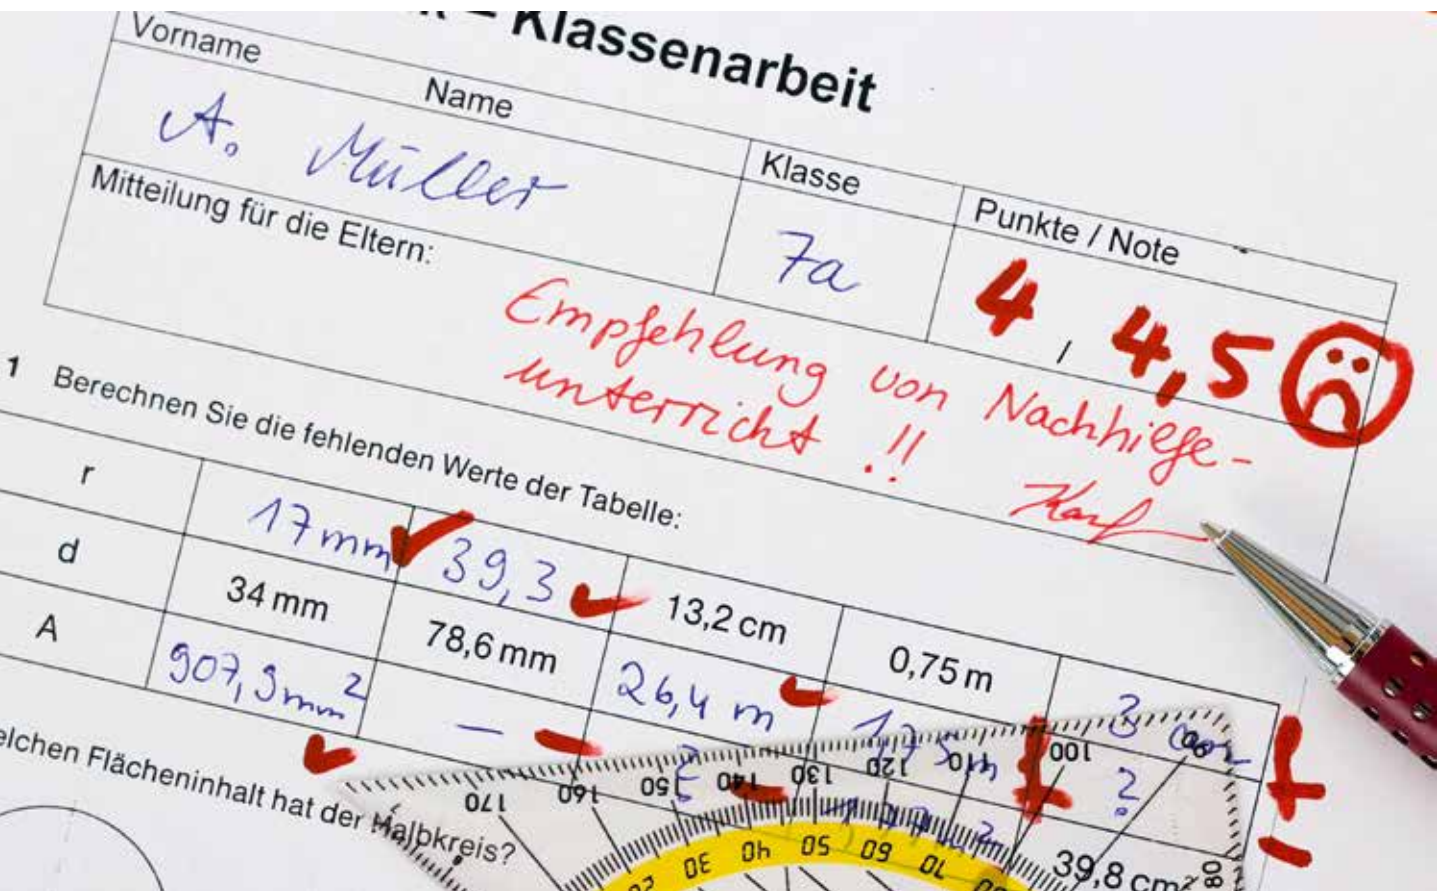 – Klassenarbeit
Vorname Name
A. Müller
Klasse
7a
Punkte / Note
4 / 4,5
Mitteilung für die Eltern:
Empfehlung von Nachhilfe-
unterricht !!
1 Berechnen Sie die fehlenden Werte der Tabelle:
r 17mm 39,3 13,2 cm 0,75 m 3 cm
d 34 mm 78,6 mm 26,4 m 1,75 m ?
A 907,9mm² – ? 39,8 cm²
elchen Flächeninhalt hat der Halbkreis?
170 160 150 140 130 120 110 100 90 80
30 40 50 60 70